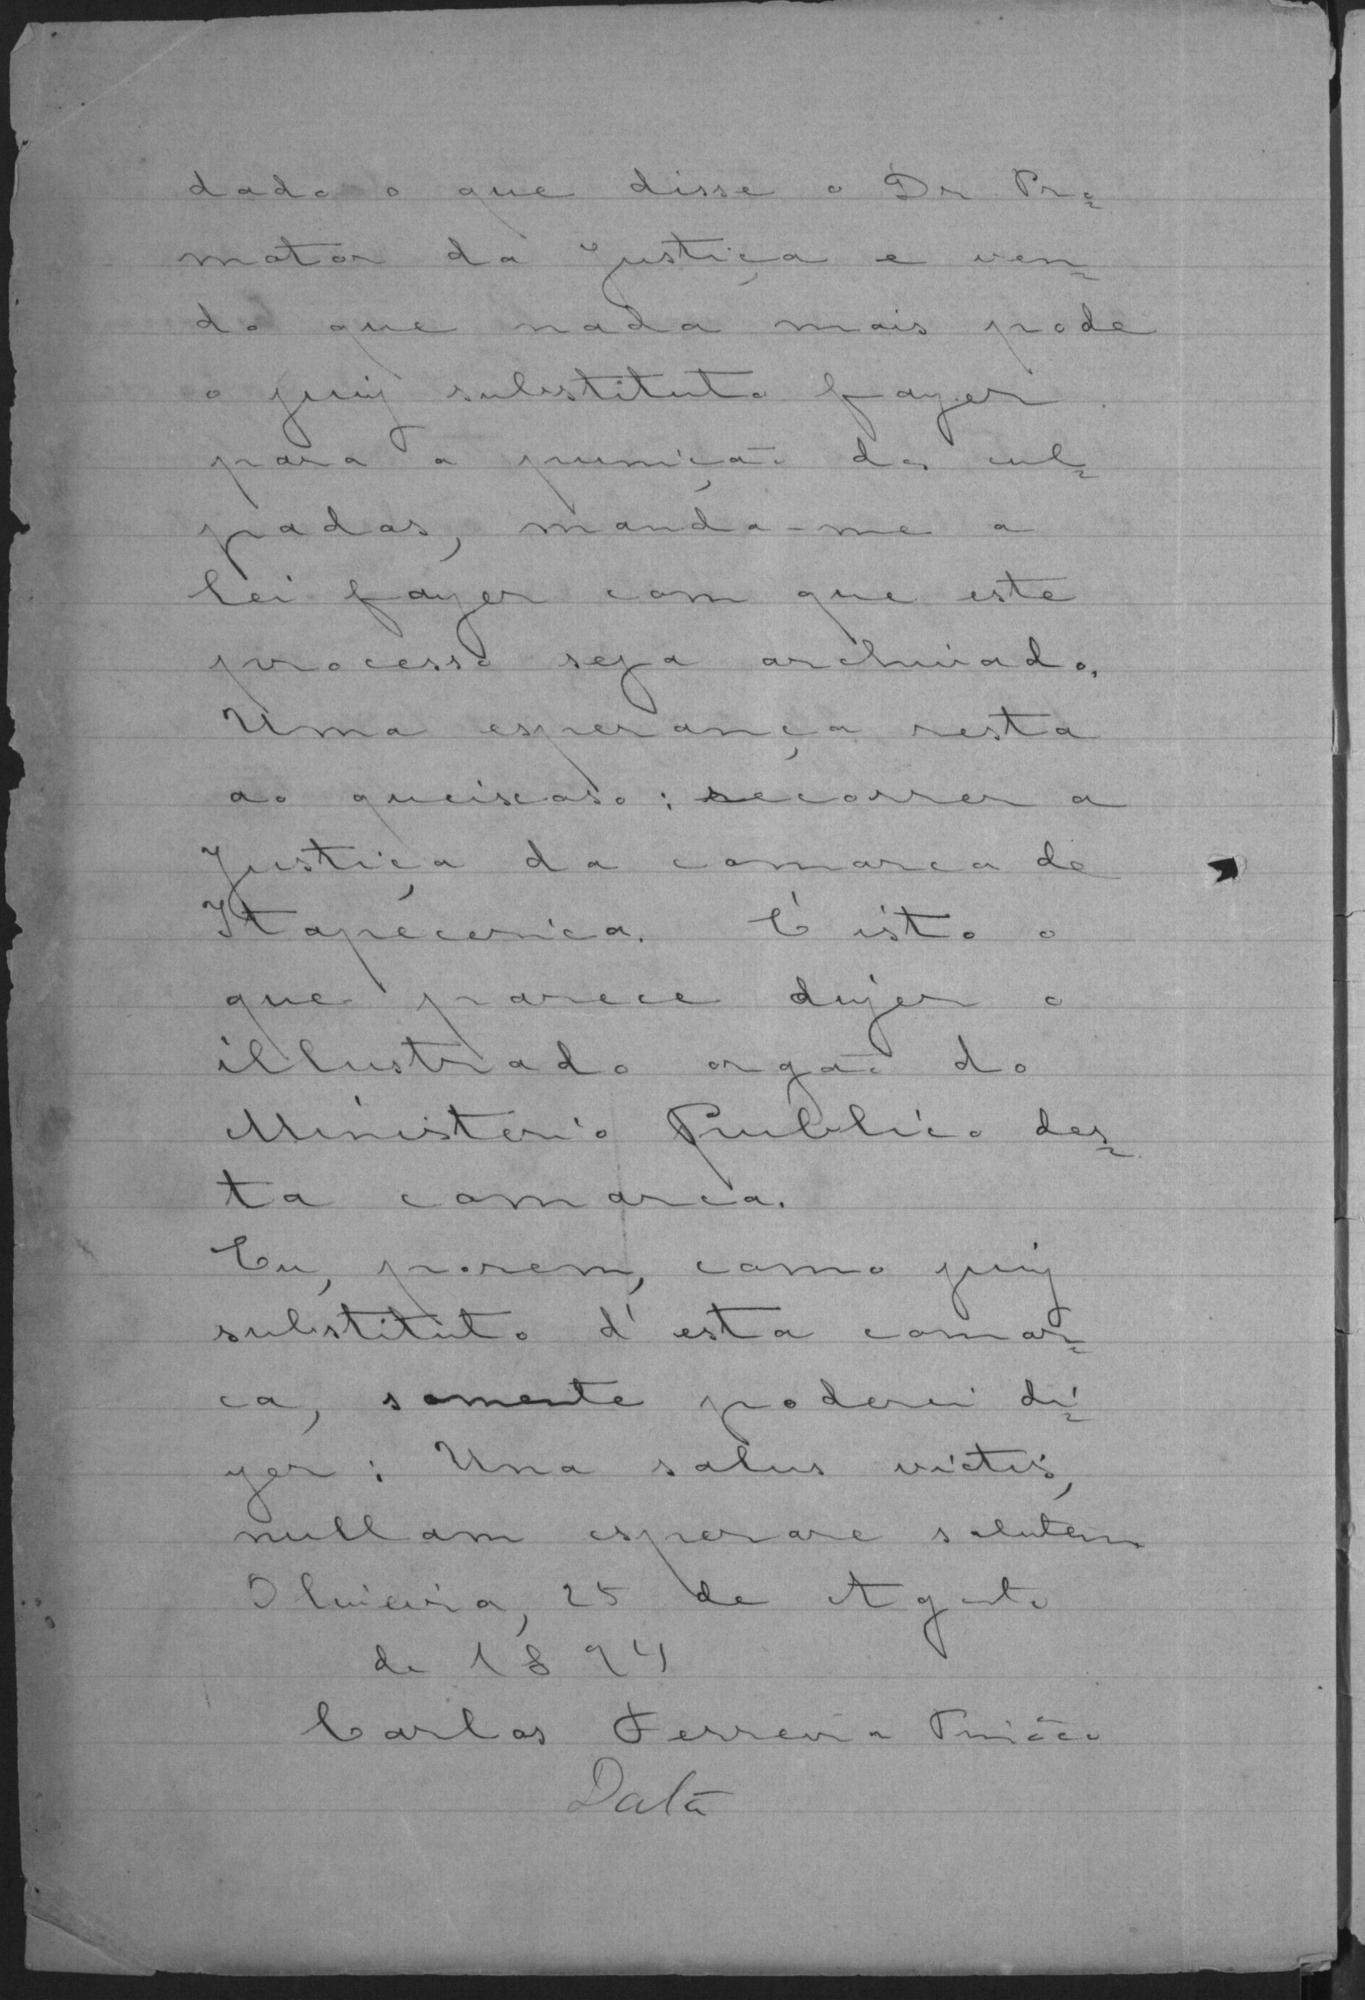 dado o que disse o Dr. Pro-
motor da Justiça e ven-
do que nada mais pode
o juiz substituto fazer
para a punição dos cul-
pados, manda-me a
lei fazer com que este
processo seja archivado.
Uma esperança resta
ao queixoso: recorrer a
Justiça da comarca de
Itapecerica. É isto o
que parece dizer o
illustrado orgão do
Ministerio Publico des-
ta comarca.
Eu, porem, como juiz
substituto d'esta comar-
ca, somente poderei di-
zer: Una salus victis,
nullam esperare salutem
Oliveira, 25 de Agosto
de 1894
Carlos Ferreira
Data